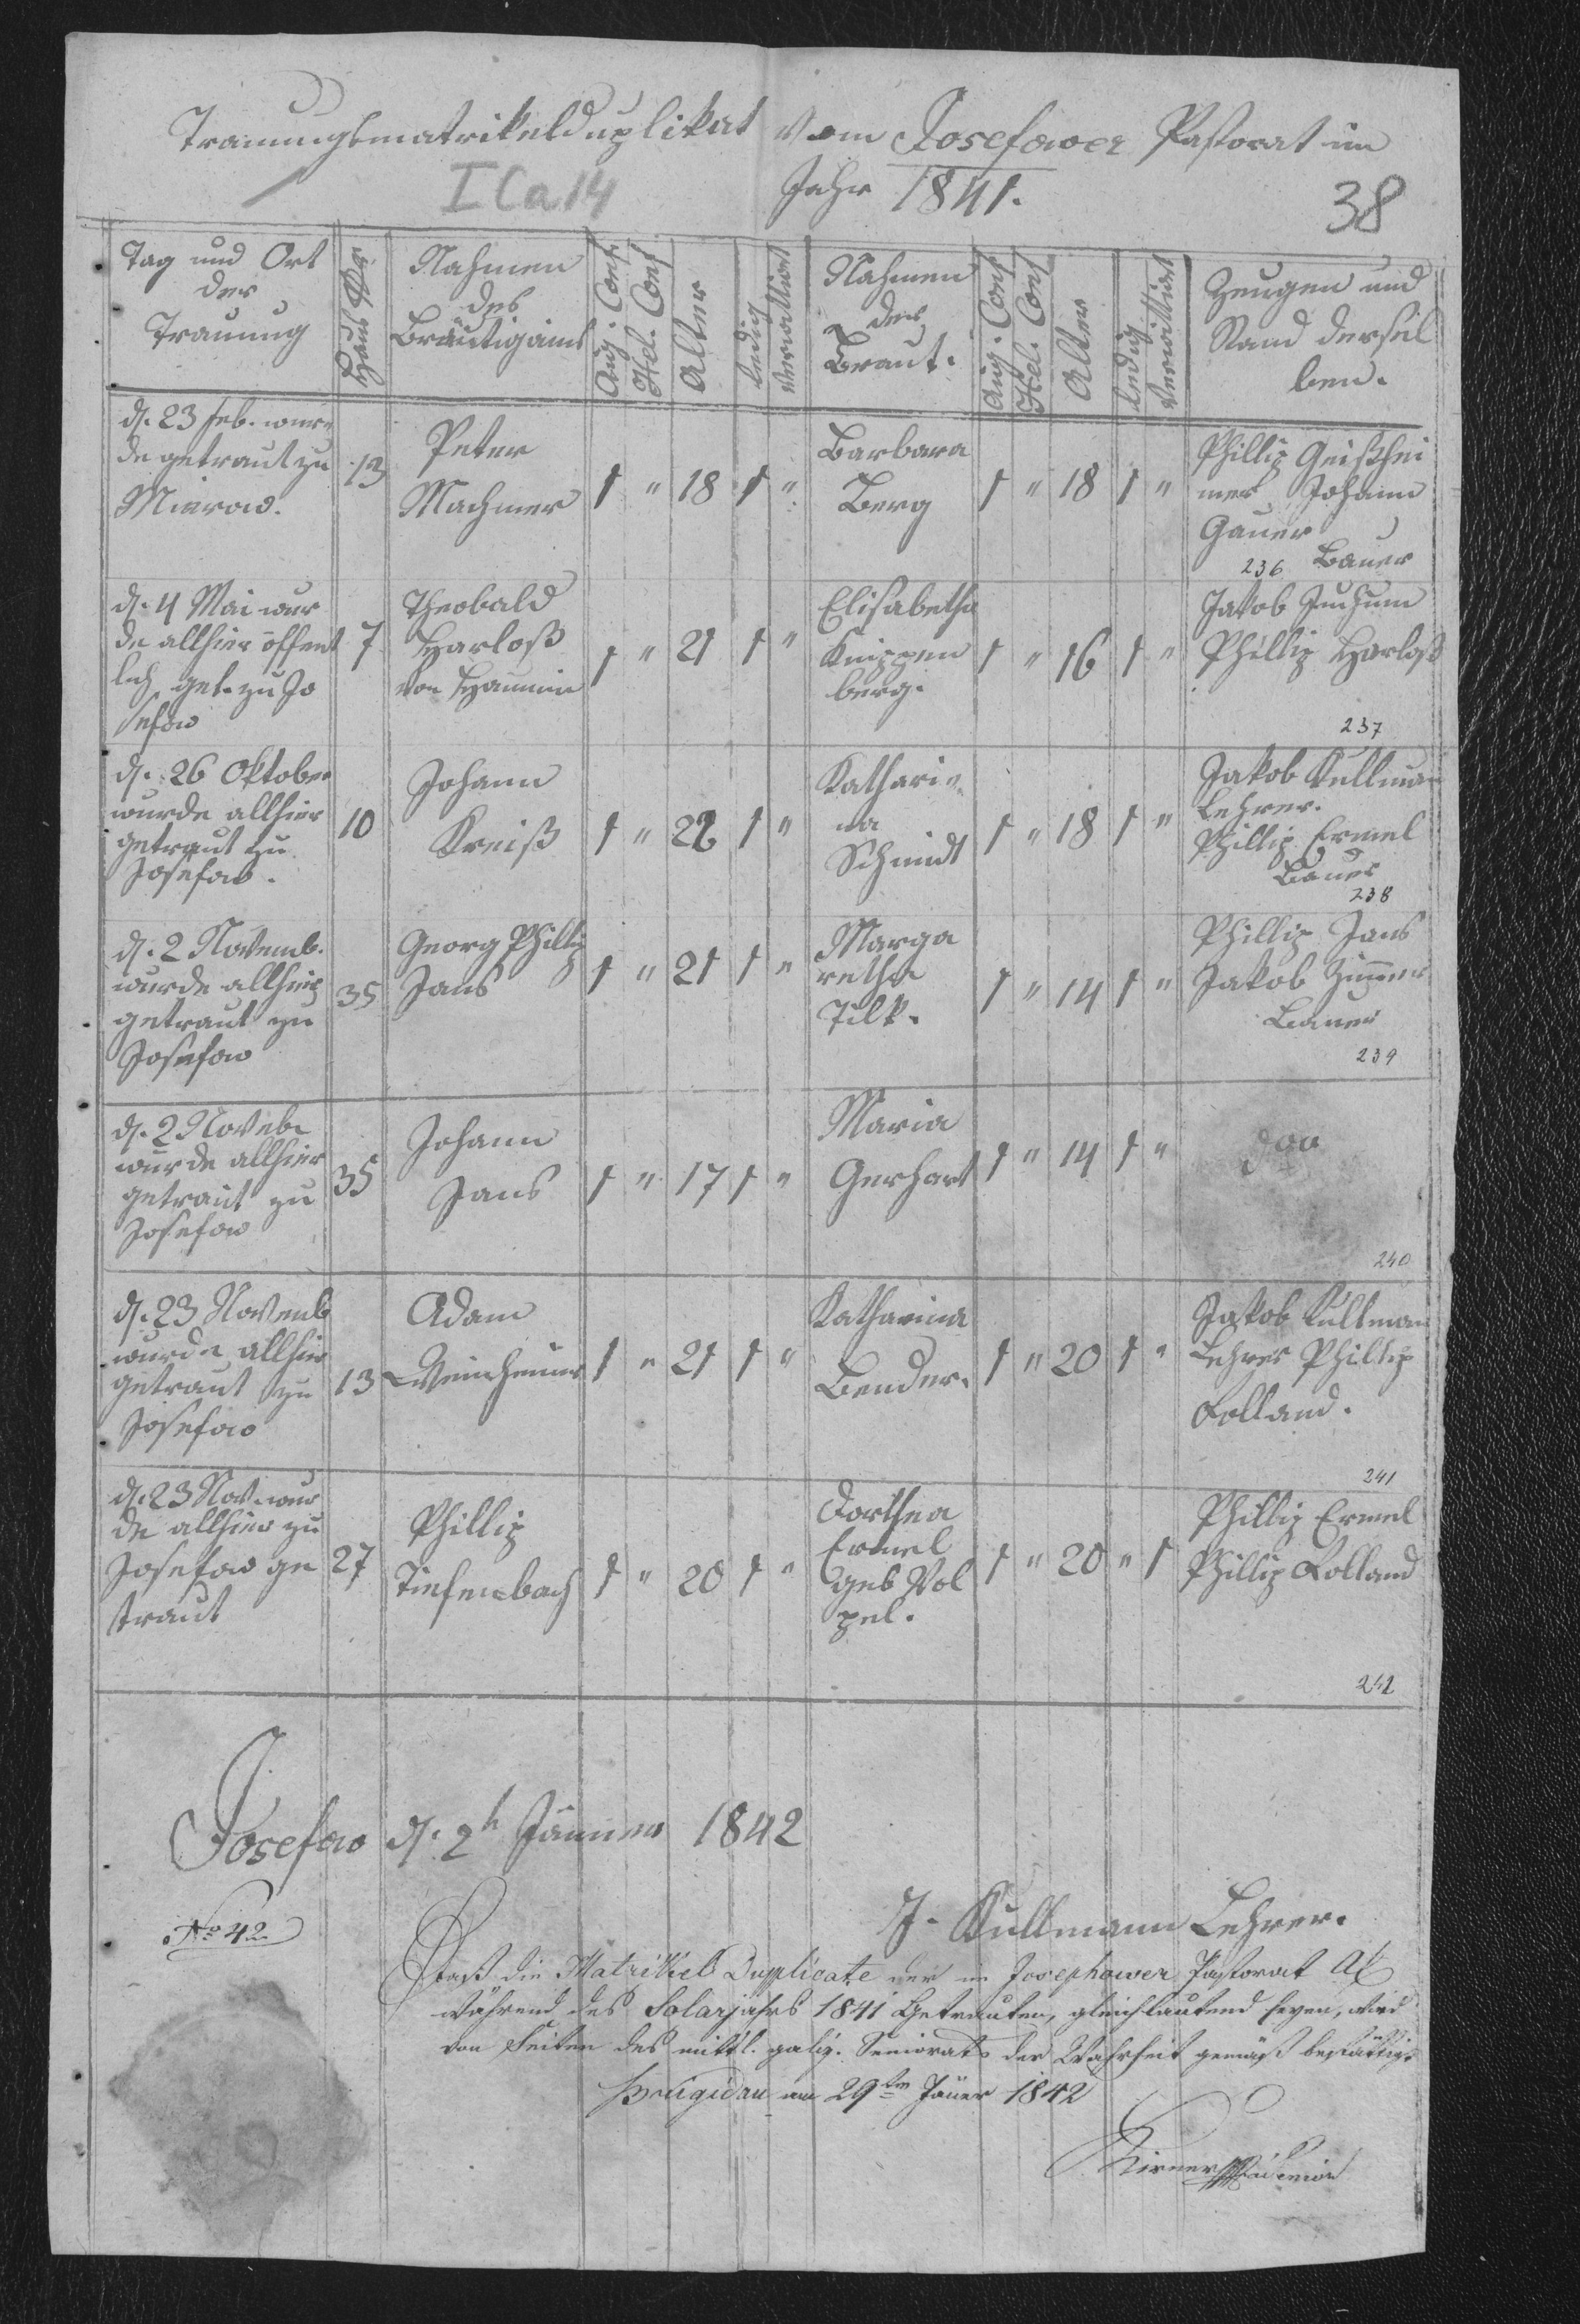 Trauungsmatrikelduplikat vom Josefower Pastorat im
Jahr 1841.
I Ca 14
38
Tag und Ort
der
Trauung
Haus Nr.
Nahmen
des
Bräutigams
Aug. Conf
Hel. Conf
Alter
ledig
verwittwet
Nahmen
der
Braut.
Aug. Conf
Hel. Conf
Alter
ledig
verwittwet
Zeugen und
Stand dersel
ben.
d. 23 Feb. wur-
de getraut zu
Mierow.
13
Peter
Machmer
1 " 18 1 "
Barbara
Berg
1 " 18 1 "
Phillip Geißhei
mer Johann
Gauer
Bauer
236
d. 4 Mai wur
de allhier öffent
lich get. zu Jo
sefow
7
Theobald
Harloß
von
1 " 21 1 "
Elisabetha
Knippen
berg.
1 " 16 1 "
Jakob Juchum
Phillip Harloß
237
d. 26 Oktober
wurde allhier
getraut zu
Josefow.
10
Johann
Kreiß
1 " 22 1 "
Kathari-
na
Schmidt
1 " 18 1 "
Jakob Kullman
Lehrer.
Phillip Ermel
Bauer
238
d. 2 Novemb.
wurde allhier
getraut zu
Josefow
35
Georg Phillip
Jans
1 " 21 1 "
Marga
retha
Tilk.
1 " 14 1 "
Phillip Jans
Jakob Zimmer
Bauer
239
d. 2 Novebr
wurde allhier
getraut zu
Josefow
35
Johann
Jans
1 " 17 1 "
Maria
Gerhart
1 " 14 1 "
dto
240
d. 23 Novemb
wurde allhier
getraut zu
Josefow
13
Adam
Weinheimer
1 " 21 1 "
Katharina
Bender.
1 " 20 1 "
Jakob Kullman
Lehrer Phillip
Rolland.
241
d. 23 Nov. wur
de allhier zu
Josefow ge
traut
27
Phillip
Tiefenbach
1 " 20 1 "
Dorthea
Ermel
geb Vol
pel.
1 " 20 " 1
Phillip Ermel
Phillip Rolland
242
Josefow d. 2t Jänner 1842
J. Kullmann Lehrer.
No 42
Daß die Matrikel Dupplicate der im Josephower Pastorat AC
während des Solarjahrs 1841 Getrauten, gleichlautend seyen, wird
von Seiten des mittl. galiz. Seniorats der Wahrheit gemäß bestättigt
Brigidau am 29ten Jäner 1842